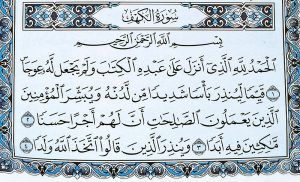 سُورَةُ الكَهْفِ
بِسْمِ اللَّهِ الرَّحْمَٰنِ الرَّحِيمِ
الْحَمْدُ لِلَّهِ الَّذِي أَنزَلَ عَلَىٰ عَبْدِهِ الْكِتَٰبَ وَلَمْ يَجْعَل لَّهُ عِوَجَا
۝١ قَيِّمًا لِّيُنذِرَ بَأْسًا شَدِيدًا مِّن لَّدُنْهُ وَيُبَشِّرَ الْمُؤْمِنِينَ
الَّذِينَ يَعْمَلُونَ الصَّٰلِحَٰتِ أَنَّ لَهُمْ أَجْرًا حَسَنًا ۝٢
مَّٰكِثِينَ فِيهِ أَبَدًا ۝٣ وَيُنذِرَ الَّذِينَ قَالُوا اتَّخَذَ اللَّهُ وَلَدًا ۝٤